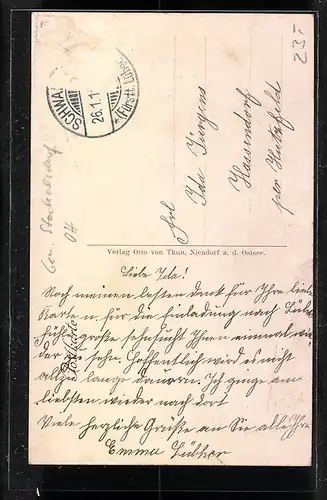 23.-
SCHWA
26.1.1
*(Fürst. Lübec
Gr. Stockelsdorf
04
Frl
Ida Jürgens
Hassendorf
per Hutzfeld
Verlag Otto von Thun, Niendorf a. d. Ostsee.
Liebe Ida!
Noch meinen besten Dank für Ihre liebe
Karte u. für die Einladung nach
große Sehnsucht Ihnen einmal wie
der zu sehn. Hoffentlich wird es nicht
allzu lange dauern. Ich ginge am
liebsten wieder nach dort
Viele herzliche Grüße an Sie alle Ihre
Emma Lüther
Postkarte